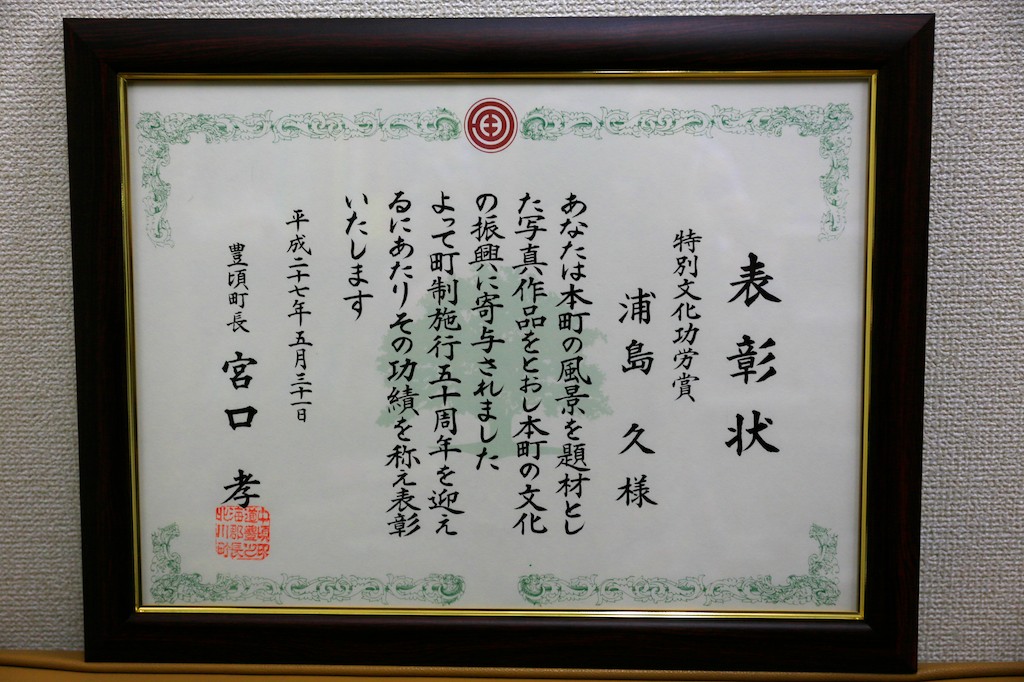 表彰状
特別文化功労賞
浦島 久 様
あなたは本町の風景を題材とし
た写真作品をとおし本町の文化
の振興に寄与されました
よって町制施行五十周年を迎え
るにあたりその功績を称え表彰
いたします
平成二十七年五月三十一日
豊頃町長 宮口 孝